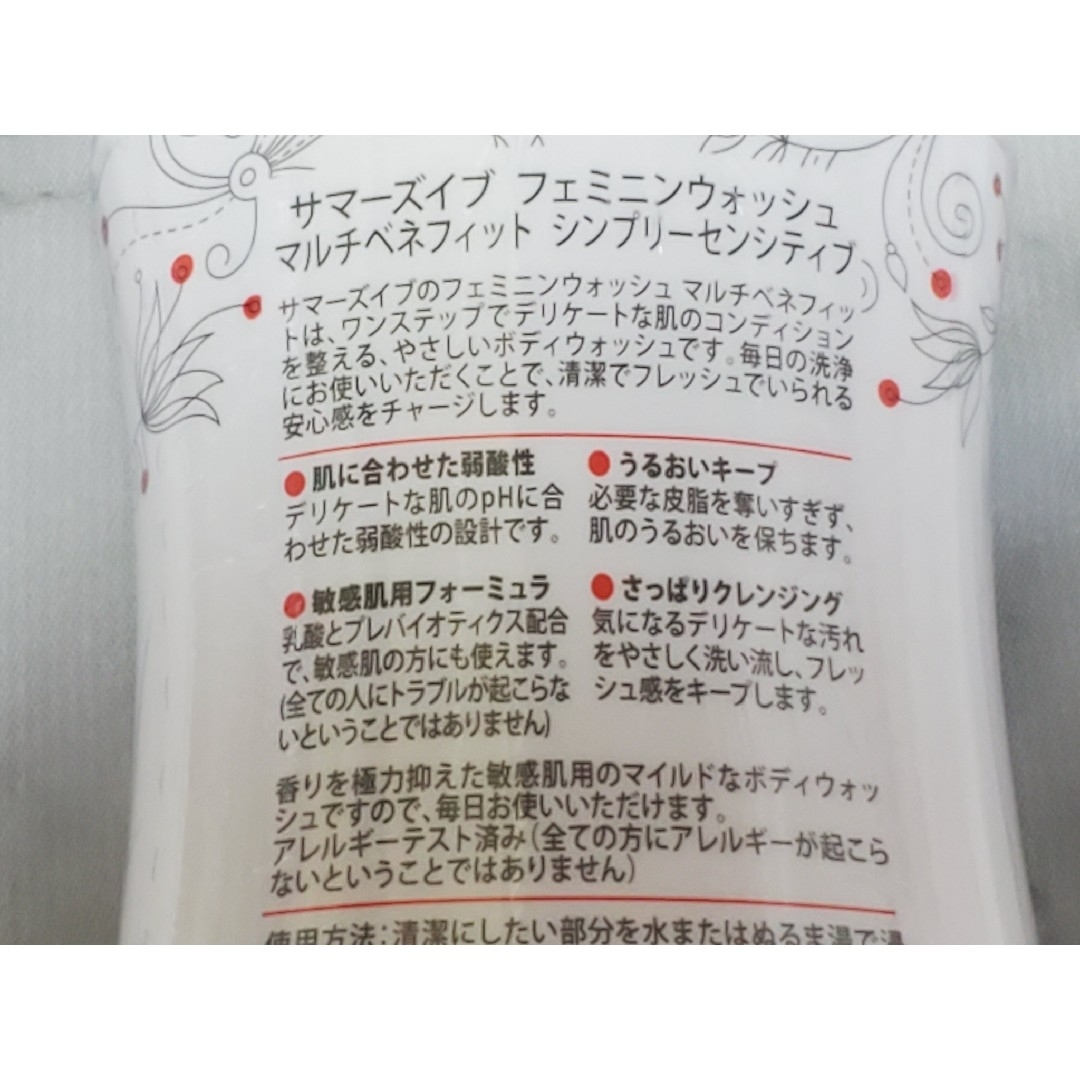 サマーズイブ フェミニンウォッシュ
マルチベネフィット シンプリーセンシティブ
サマーズイブのフェミニンウォッシュ マルチベネフィッ
トは、ワンステップでデリケートな肌のコンディション
を整える、やさしいボディウォッシュです。毎日の洗浄
にお使いいただくことで、清潔でフレッシュでいられる
安心感をチャージします。
●肌に合わせた弱酸性
デリケートな肌のpHに合
わせた弱酸性の設計です。
●うるおいキープ
必要な皮脂を奪いすぎず、
肌のうるおいを保ちます。
●敏感肌用フォーミュラ
乳酸とプレバイオティクス配合
で、敏感肌の方にも使えます。
(全ての人にトラブルが起こらな
いということではありません)
●さっぱりクレンジング
気になるデリケートな汚れ
をやさしく洗い流し、フレッ
シュ感をキープします。
香りを極力抑えた敏感肌用のマイルドなボディウォッ
シュですので、毎日お使いいただけます。
アレルギーテスト済み(全ての方にアレルギーが起こら
ないということではありません)
使用方法:清潔にしたい部分を水またはぬるま湯で